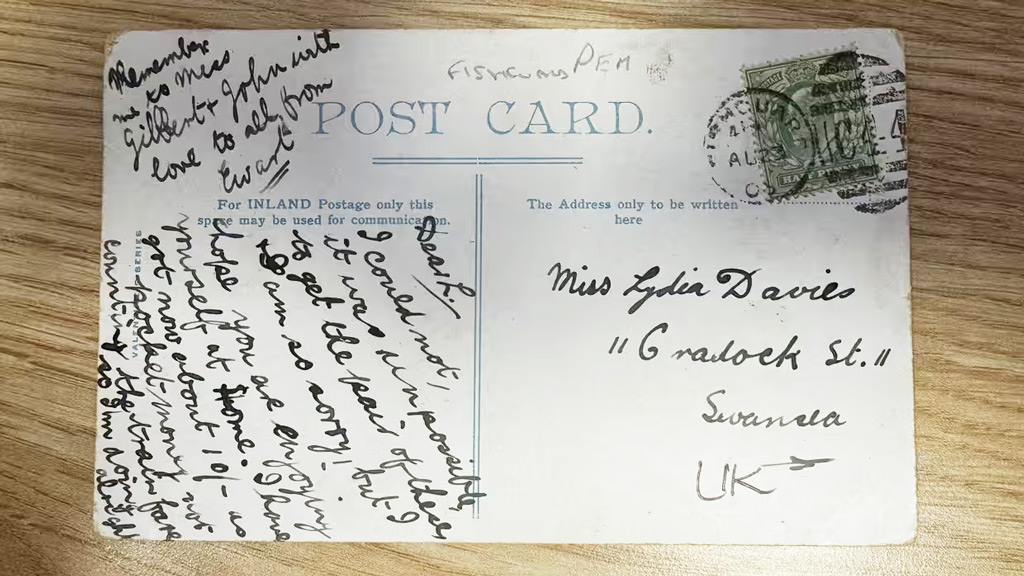 Remember
me to Miss
Gilbert & John with
love to all from
Ewart
PEM
POST CARD.
For INLAND Postage only this
space may be used for communication.
The Address only to be written
here
Dear L.
I could not,
it was impossible,
to get the pair of these
& I am so sorry, but I
hope you are enjoying
yourself at Home. I have
got now about 10/- as
pocket-money not
counting the train fare
so I'm doing alright
VALENTINES SERIES
Miss Lydia Davies
11 Cradock St.
Swansea
UK